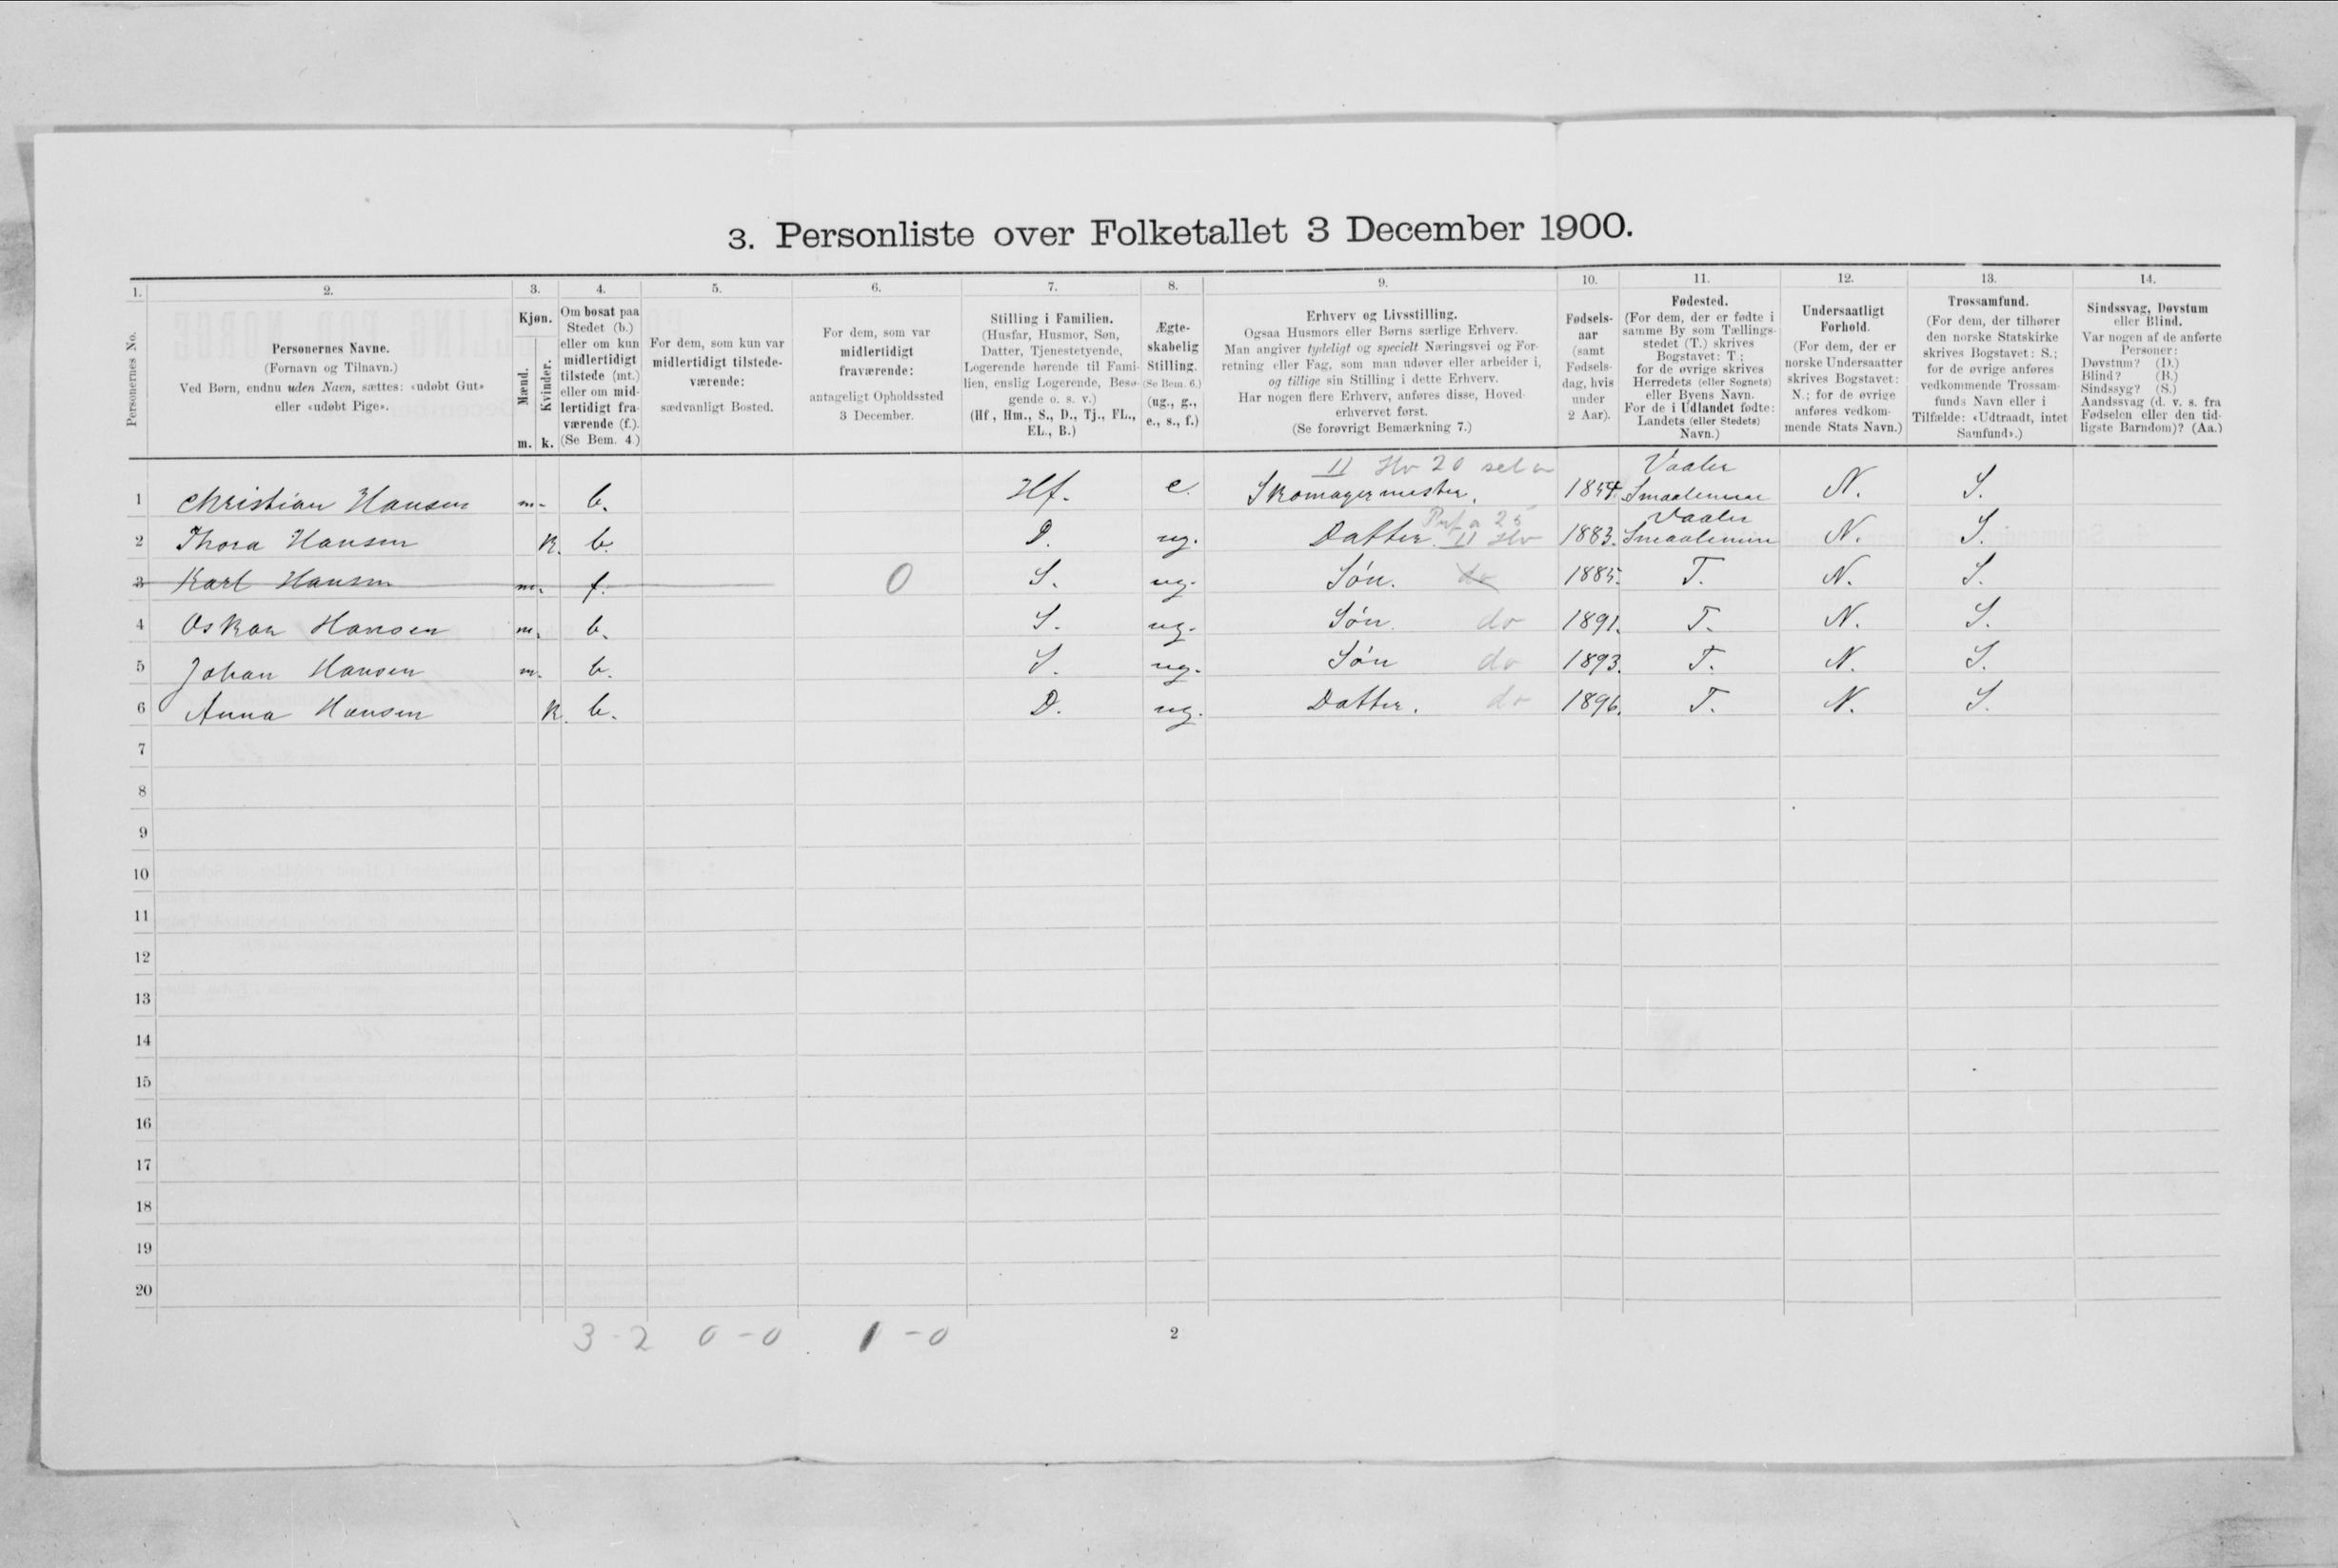 3. Personliste over Folketallet 3 December 1900.
1. 2. 3. 4. 5. 6. 7. 8. 9. 10. 11. 12. 13. 14.
Personernes No.
Personernes Navne.
(Fornavn og Tilnavn.)
Ved Børn, endnu uden Navn, sættes: «udøbt Gut»
eller «udøbt Pige».
Kjøn.
Mænd.
Kvinder.
m. k.
Om bosat paa
Stedet (b.)
eller om kun
midlertidigt
tilstede (mt.)
eller om mid-
lertidigt fra-
værende (f.).
(Se Bem. 4.)
For dem, som kun var
midlertidigt tilstede-
værende:
sædvanligt Bosted.
For dem, som var
midlertidigt
fraværende:
antageligt Opholdssted
3 December.
Stilling i Familien.
(Husfar, Husmor, Søn,
Datter, Tjenestetyende,
Logerende hørende til Fami-
lien, enslig Logerende, Besø-
gende o. s. v.)
(Hf., Hm., S., D., Tj., FL.,
EL., B.)
Ægte-
skabelig
Stilling.
(Se Bem. 6.)
(ug., g.,
e., s., f.)
Erhverv og Livsstilling.
Ogsaa Husmors eller Børns særlige Erhverv.
Man angiver tydeligt og specielt Næringsvei og For-
retning eller Fag, som man udøver eller arbeider i,
og tillige sin Stilling i dette Erhverv.
Har nogen flere Erhverv, anføres disse, Hoved-
erhvervet først.
(Se forøvrigt Bemærkning 7.)
Fødsels-
aar
(samt
Fødsels-
dag, hvis
under
2 Aar).
Fødested.
(For dem, der er fødte i
samme By som Tællings-
stedet (T.) skrives
Bogstavet: T;
for de øvrige skrives
Herredets (eller Sognets)
eller Byens Navn.
For de i Udlandet fødte:
Landets (eller Stedets)
Navn.)
Undersaatligt
Forhold.
(For dem, der er
norske Undersaatter
skrives Bogstavet:
N.; for de øvrige
anføres vedkom-
mende Stats Navn.)
Trossamfund.
(For dem, der tilhører
den norske Statskirke
skrives Bogstavet: S.;
for de øvrige anføres
vedkommende Trossam-
funds Navn eller i
Tilfælde: «Udtraadt, intet
Samfund».)
Sindssvag, Døvstum
eller Blind.
Var nogen af de anførte
Personer:
Døvstum? (D.)
Blind? (B.)
Sindssyg? (S.)
Aandssvag (d. v. s. fra
Fødselen eller den tid-
ligste Barndom)? (Aa.)
II Hv 20 Vaaler
1 Christian Hansen m. b. Hf. e. Skomagermester. 1854 Smaalenene N. S.
a 25 Vaaler
2 Thora Hansen k. b. D. ug. Datter. II Hv 1883. Smaalenene N. S.
3 Karl Hansen m. f. 0 S. ug. Søn. do 1885. T. N. S.
4 Oskar Hansen m. b. S. ug. Søn. do 1891. T. N. S.
5 Johan Hansen m. b. S. ug. Søn do 1893. T. N. S.
6 Anna Hansen k. b. D. ug. Datter. do 1896. T. N. S.
7
8
9
10
11
12
13
14
15
16
17
18
19
20
3-2 0-0 1-0 2